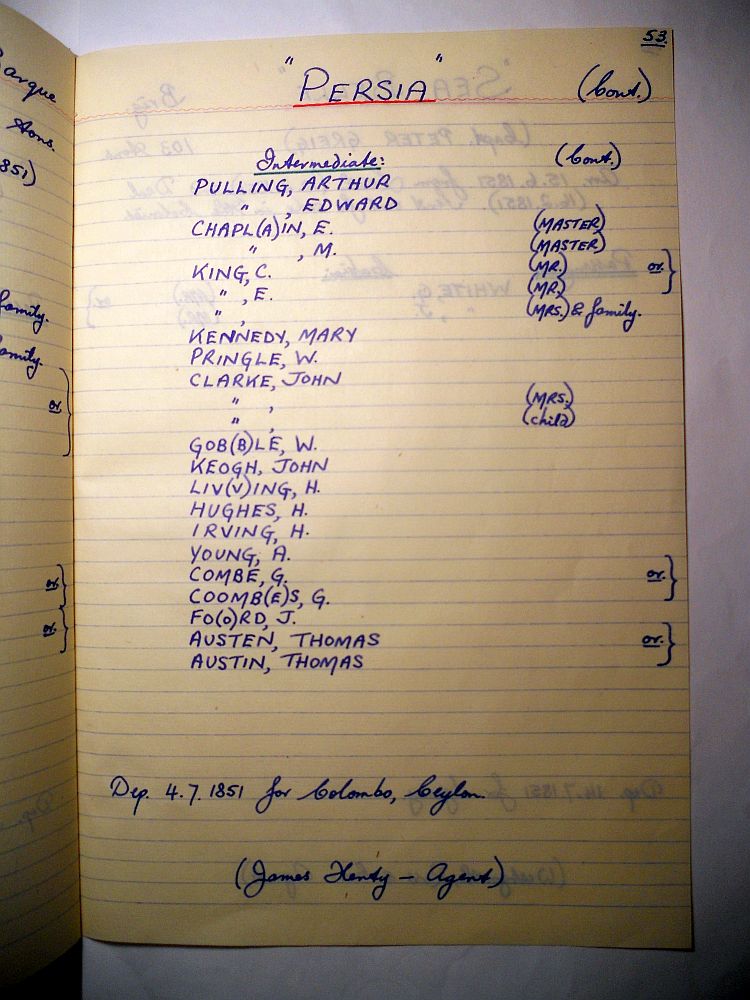 53.
"PERSIA" (Cont.)
Intermediate: (Cont.)
PULLING, ARTHUR
" , EDWARD
CHAPL(A)IN, E. (MASTER)
" , M. (MASTER)
KING, C. (MR.) or. }
" , E. (MR.)
" , (MRS.) & family.
KENNEDY, MARY
PRINGLE, W.
CLARKE, JOHN
" , (MRS.)
" , (child)
GOB(B)LE, W.
KEOGH, JOHN
LIV(V)ING, H.
HUGHES, H.
IRVING, H.
YOUNG, A.
COMBE, G. or. }
COOMB(E)S, G.
FO(O)RD, J.
AUSTEN, THOMAS or. }
AUSTIN, THOMAS
Dep. 4.7.1851 for Colombo, Ceylon.
(James Henty – Agent)
Barque
tons.
1851)
family.
family.
or.
or.
or.